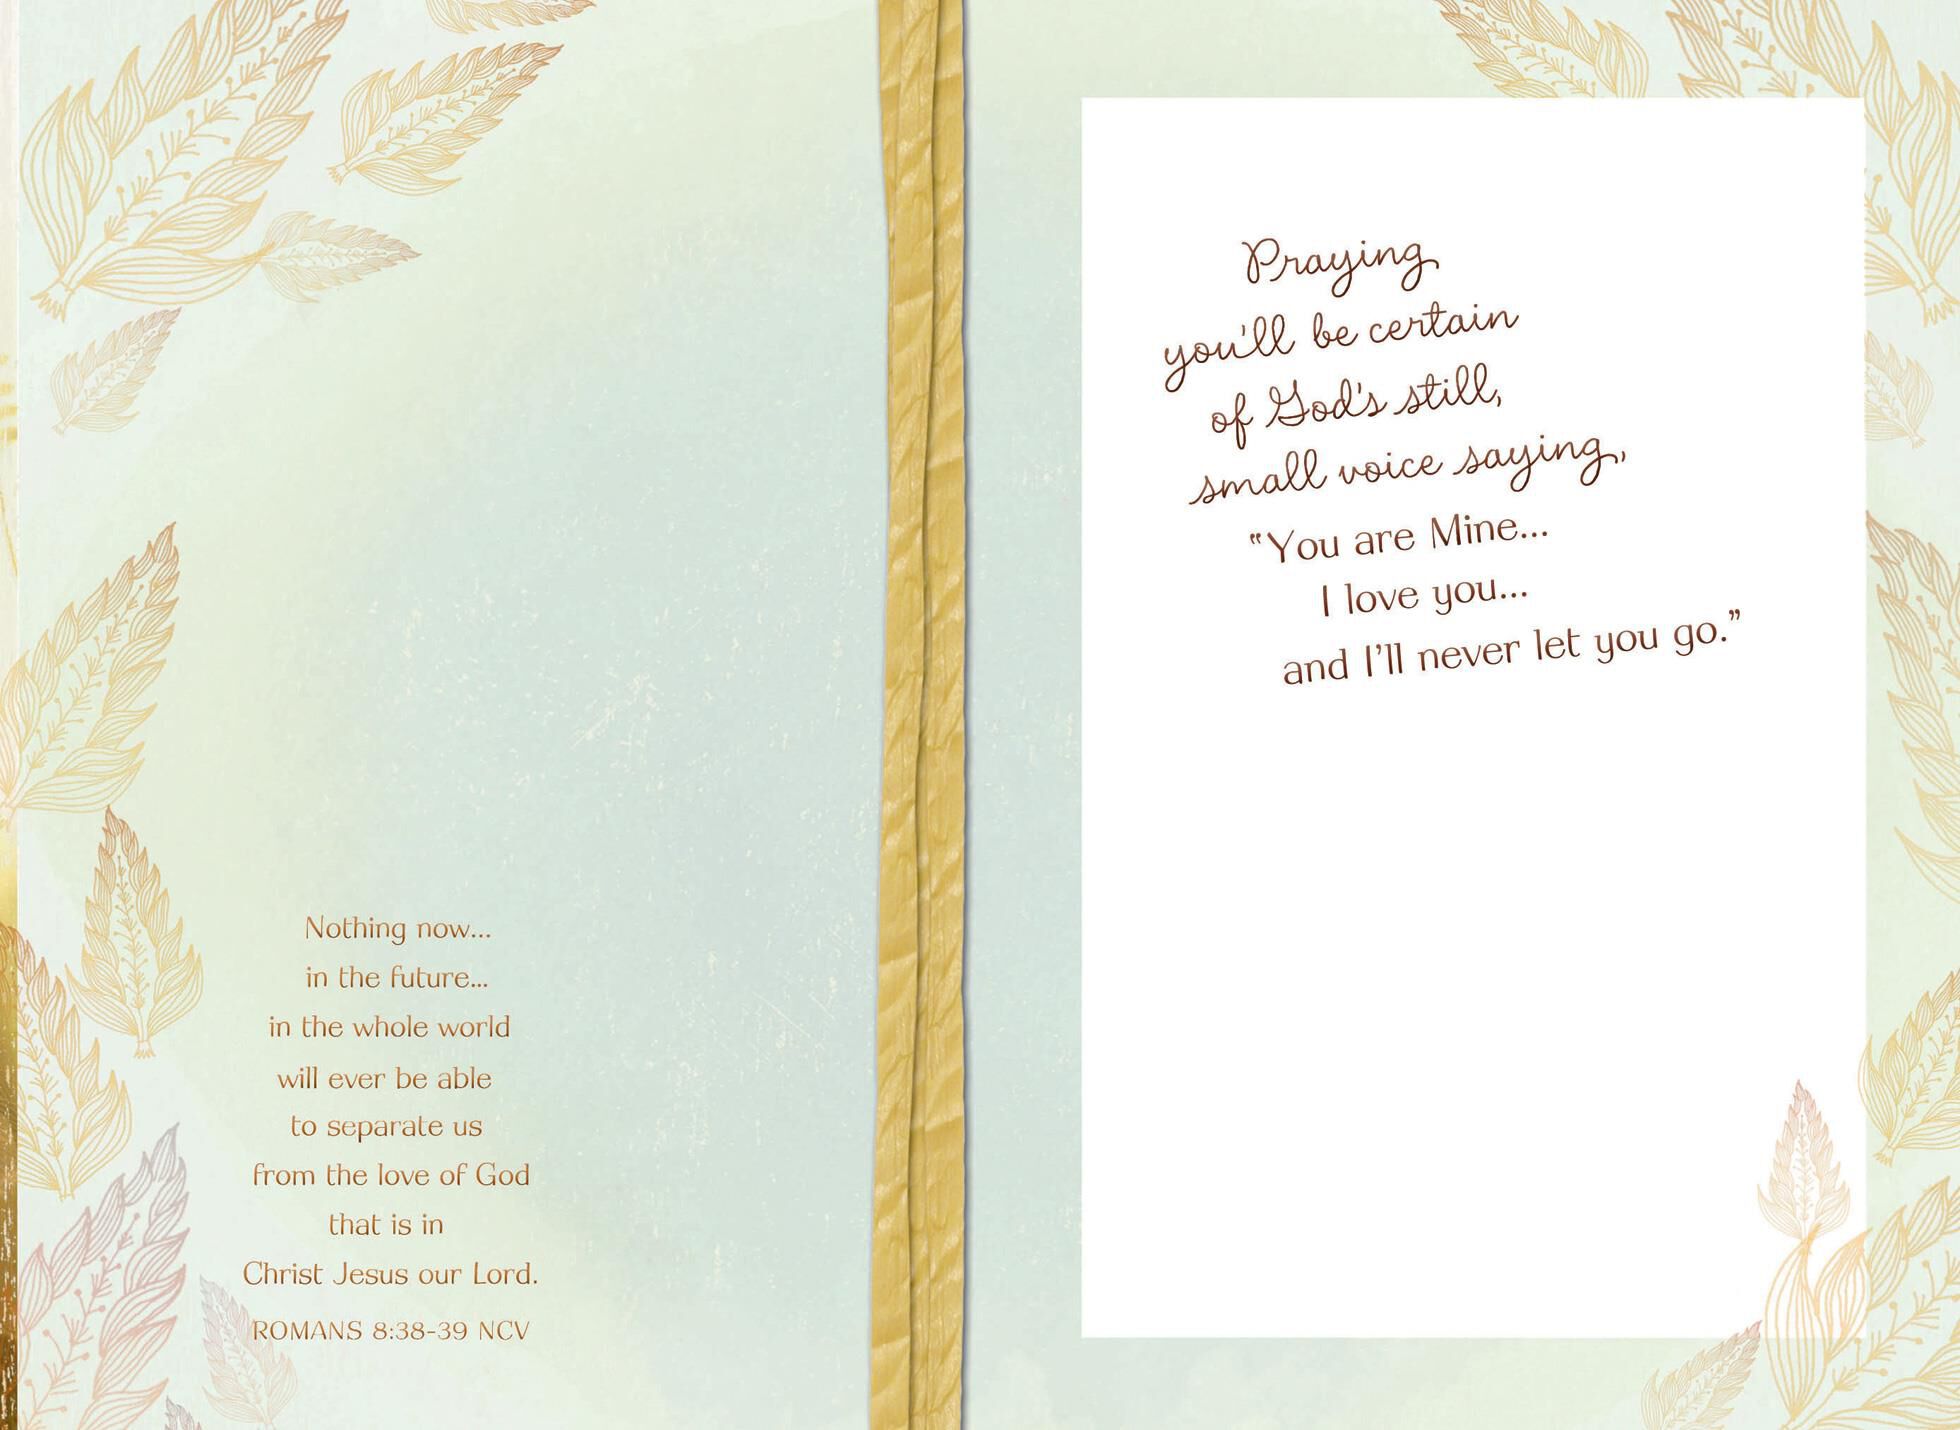 Nothing now...
in the future...
in the whole world
will ever be able
to separate us
from the love of God
that is in
Christ Jesus our Lord.
ROMANS 8:38-39 NCV
Praying
you'll be certain
of God's still,
small voice saying,
"You are Mine...
I love you...
and I'll never let you go."